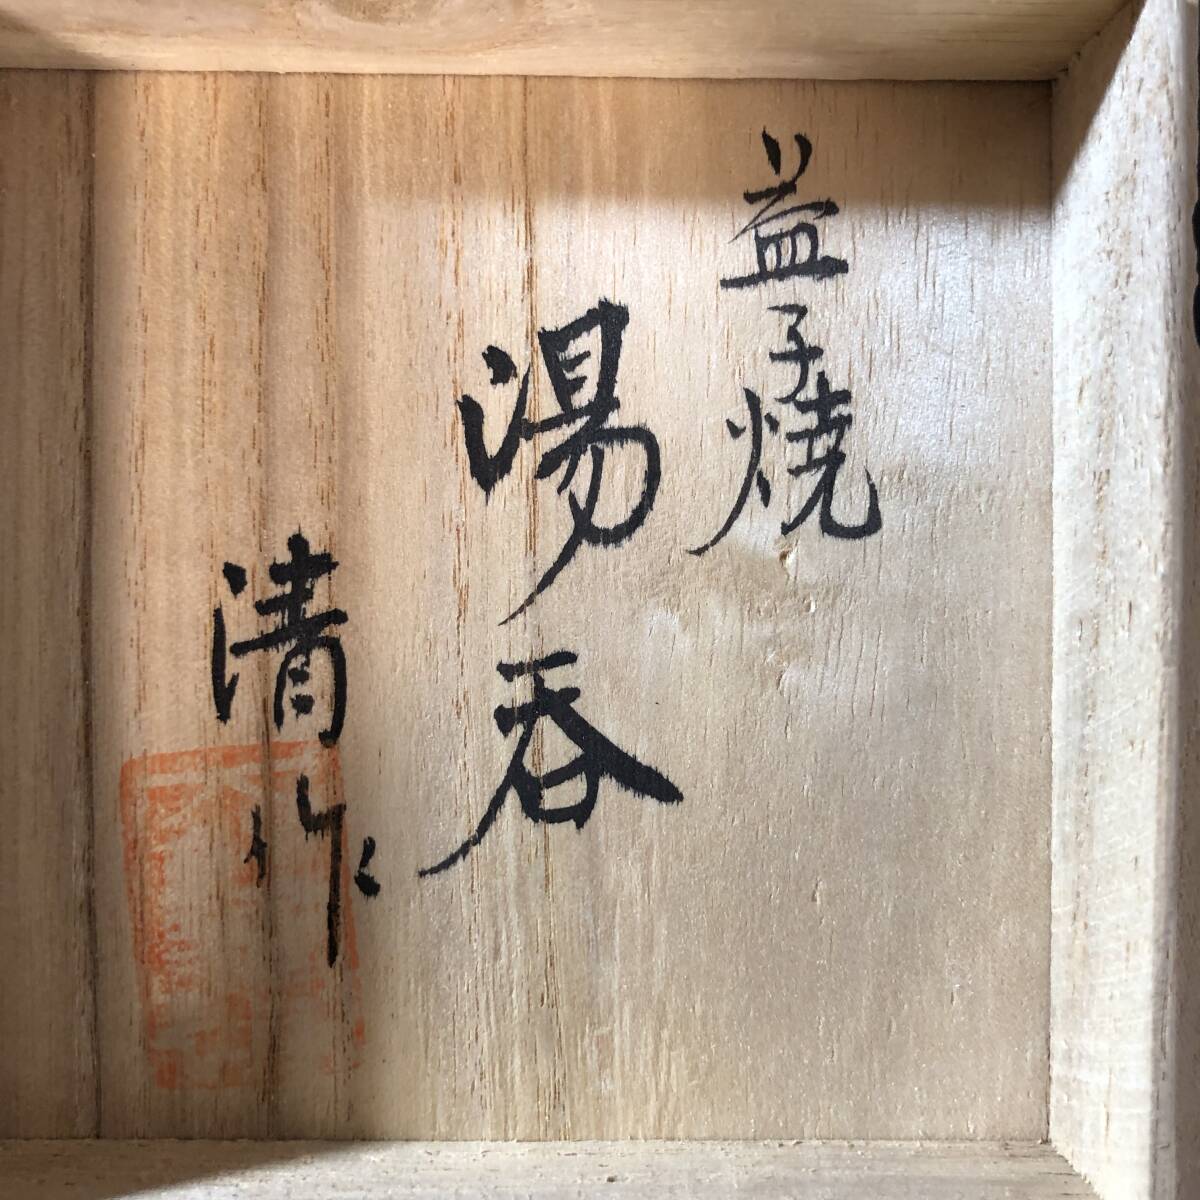 益子焼
湯呑
清作